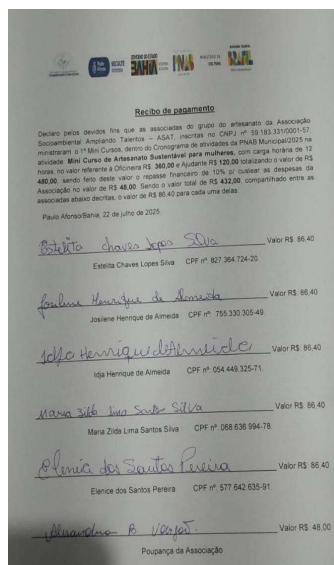 GOVERNO DO ESTADO
BAHIA
PNAB
MINISTÉRIO DA
CULTURA
Recibo de pagamento
Declaro pelos devidos fins que as associadas do grupo do artesanato da Associação
Socioambiental Ampliando Talentos – ASAT, inscritas no CNPJ nº 59.183.331/0001-57
ministraram o 1º Mini Cursos, dentro do Cronograma de atividades da PNAB Municipal/2025 na
atividade: Mini Curso de Artesanato Sustentável para mulheres, com carga horária de 12
horas, no valor referente à Oficineira R$ 360,00 e Ajudante R$ 120,00 totalizando o valor de R$
480,00, sendo feito deste valor o repasse financeiro de 10% p/ custear as despesas da
Associação no valor de R$ 48,00. Sendo o valor total de R$ 432,00, compartilhado entre as
associadas abaixo descritas, o valor de R$ 86,40 para cada uma delas.
Paulo Afonso/Bahia, 22 de julho de 2025.
Estelita Chaves Lopes Silva Valor R$. 86,40
Estelita Chaves Lopes Silva CPF nº. 827.364.724-20.
Josilene Henrique de Almeida Valor R$. 86,40
Josilene Henrique de Almeida CPF nº. 755.330.305-49.
Idja Henrique de Almeida Valor R$. 86,40
Idja Henrique de Almeida CPF nº. 054.449.325-71.
Maria Zilda Lima Santos Silva Valor R$. 86,40
Maria Zilda Lima Santos Silva CPF nº. 068.636.994-78.
Elenice dos Santos Pereira Valor R$. 86,40
Elenice dos Santos Pereira CPF nº. 577.642.635-91.
Valor R$. 48,00
Poupança da Associação